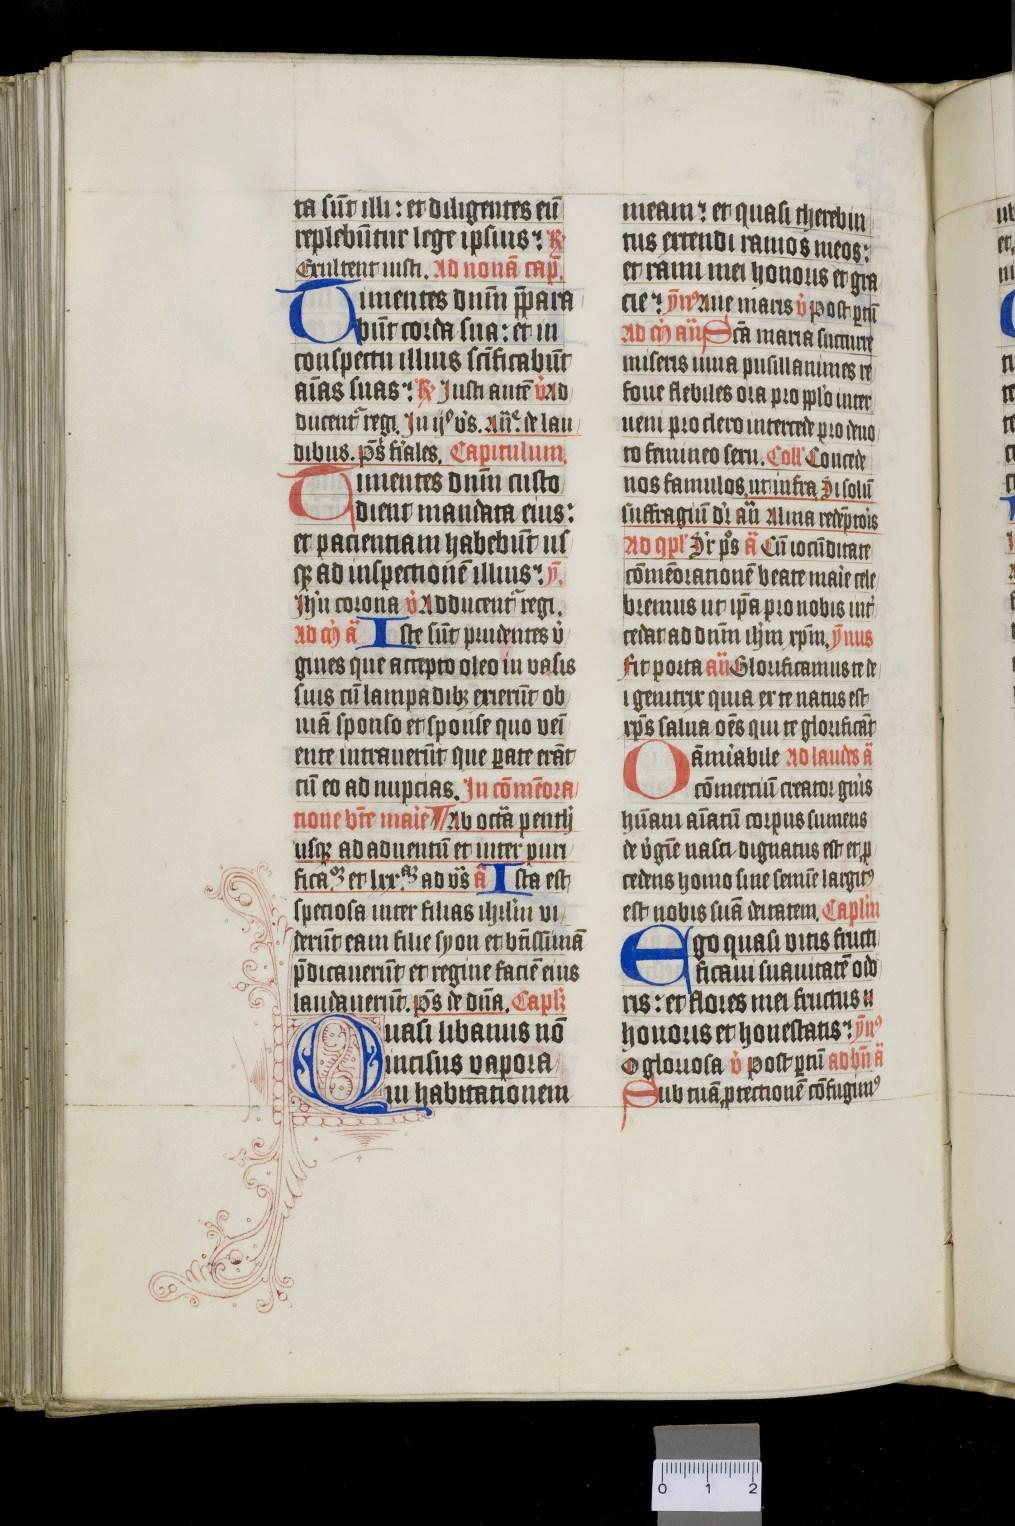 ta sūt illi : et diligentes eū
replebūtur lege ipsius. R̸
Exultent iusti. Ad nonā cap̄.
Timentes dn̄m p̄para
būt corda sua : et in
conspectu illius sc̄ificabūt
aīas suas. R̸ Iusti autē v̄ Ad
ducent᷑ regi. In ijͥs v̄s. Añe de lau
dibus. p̄s fiāles. Capitulum.
Timentes dn̄m custo
dient mandata eius :
et pacientiam habebūt us
qꝫ ad inspectionē illius. ym̄.
Ihū corona v̄ Adducent᷑ regi.
Ad m̄ ā Iste sūt prudentes v̄
gines que accepto oleo in vasis
suis cū lampadibꝫ exierūt ob
uiā sponso et sponse quo veī
ente intrauerūt que ꝑate erāt
cū eo ad nupcias. In cōmēora
tione bt̄e maīe ¶ Ab octā penth̄
usqꝫ ad aduentū et inter puri
ficaꝫ et lxx.aꝫ ad vs̄ ā Ista est
speciosa inter filias ihrlm̄ vi
derūt eam filie syon et bt̄issimā
p̄dicauerūt et regine faciē eius
laudauerūt. p̄s de dn̄a. Capl̄m
Quasi libanus nō
incisus vapora
ui habitationem
meam : et quasi therebin
tus extendi ramos meos :
et rami mei honoris et gra
cie. ym̄ꝰ Aue maris v̄ Post ꝑtū
Ad m̄ añ Sc̄a maria succurre
miseris iuua pusillanimes re
foue flebiles ora pro ppl̄o inter
ueni pro clero intercede pro deuo
to femineo sexu. Coll̄ Concede
nos famulos ut infra Di solū
suffragiū dr̄ añ Alma redēptoris
Ad 9pl̄ Sr̄ p̄s ā Cū iocūditate
cōmēorationē beate maīe cele
bremus ut ip̄a pro nobis int̄
cedat ad dn̄m ih̄m xp̄m. ym̄nus
Fit porta añ Glorificamus te de
i genitrix quia ex te natus est
xp̄s salua oēs qui te glorificāt
O āmirabile Ad laudes ā
cōmerciū creator gn̄is
hūani aīatū corpus sumens
de v̄gīe nasci dignatus est et ꝓ
cedens homo sine semīe largitꝰ
est nobis suā deitatem. Capl̄m
Ego quasi vitis fructi
ficaui suauitatē odo
ris : et flores mei fructus
honoris et honestatis. ym̄ꝰ
O gloriosa v̄ Post ꝑtū ad bn̄ ā
Sub tuā ꝓtectionē cōfugimꝰ